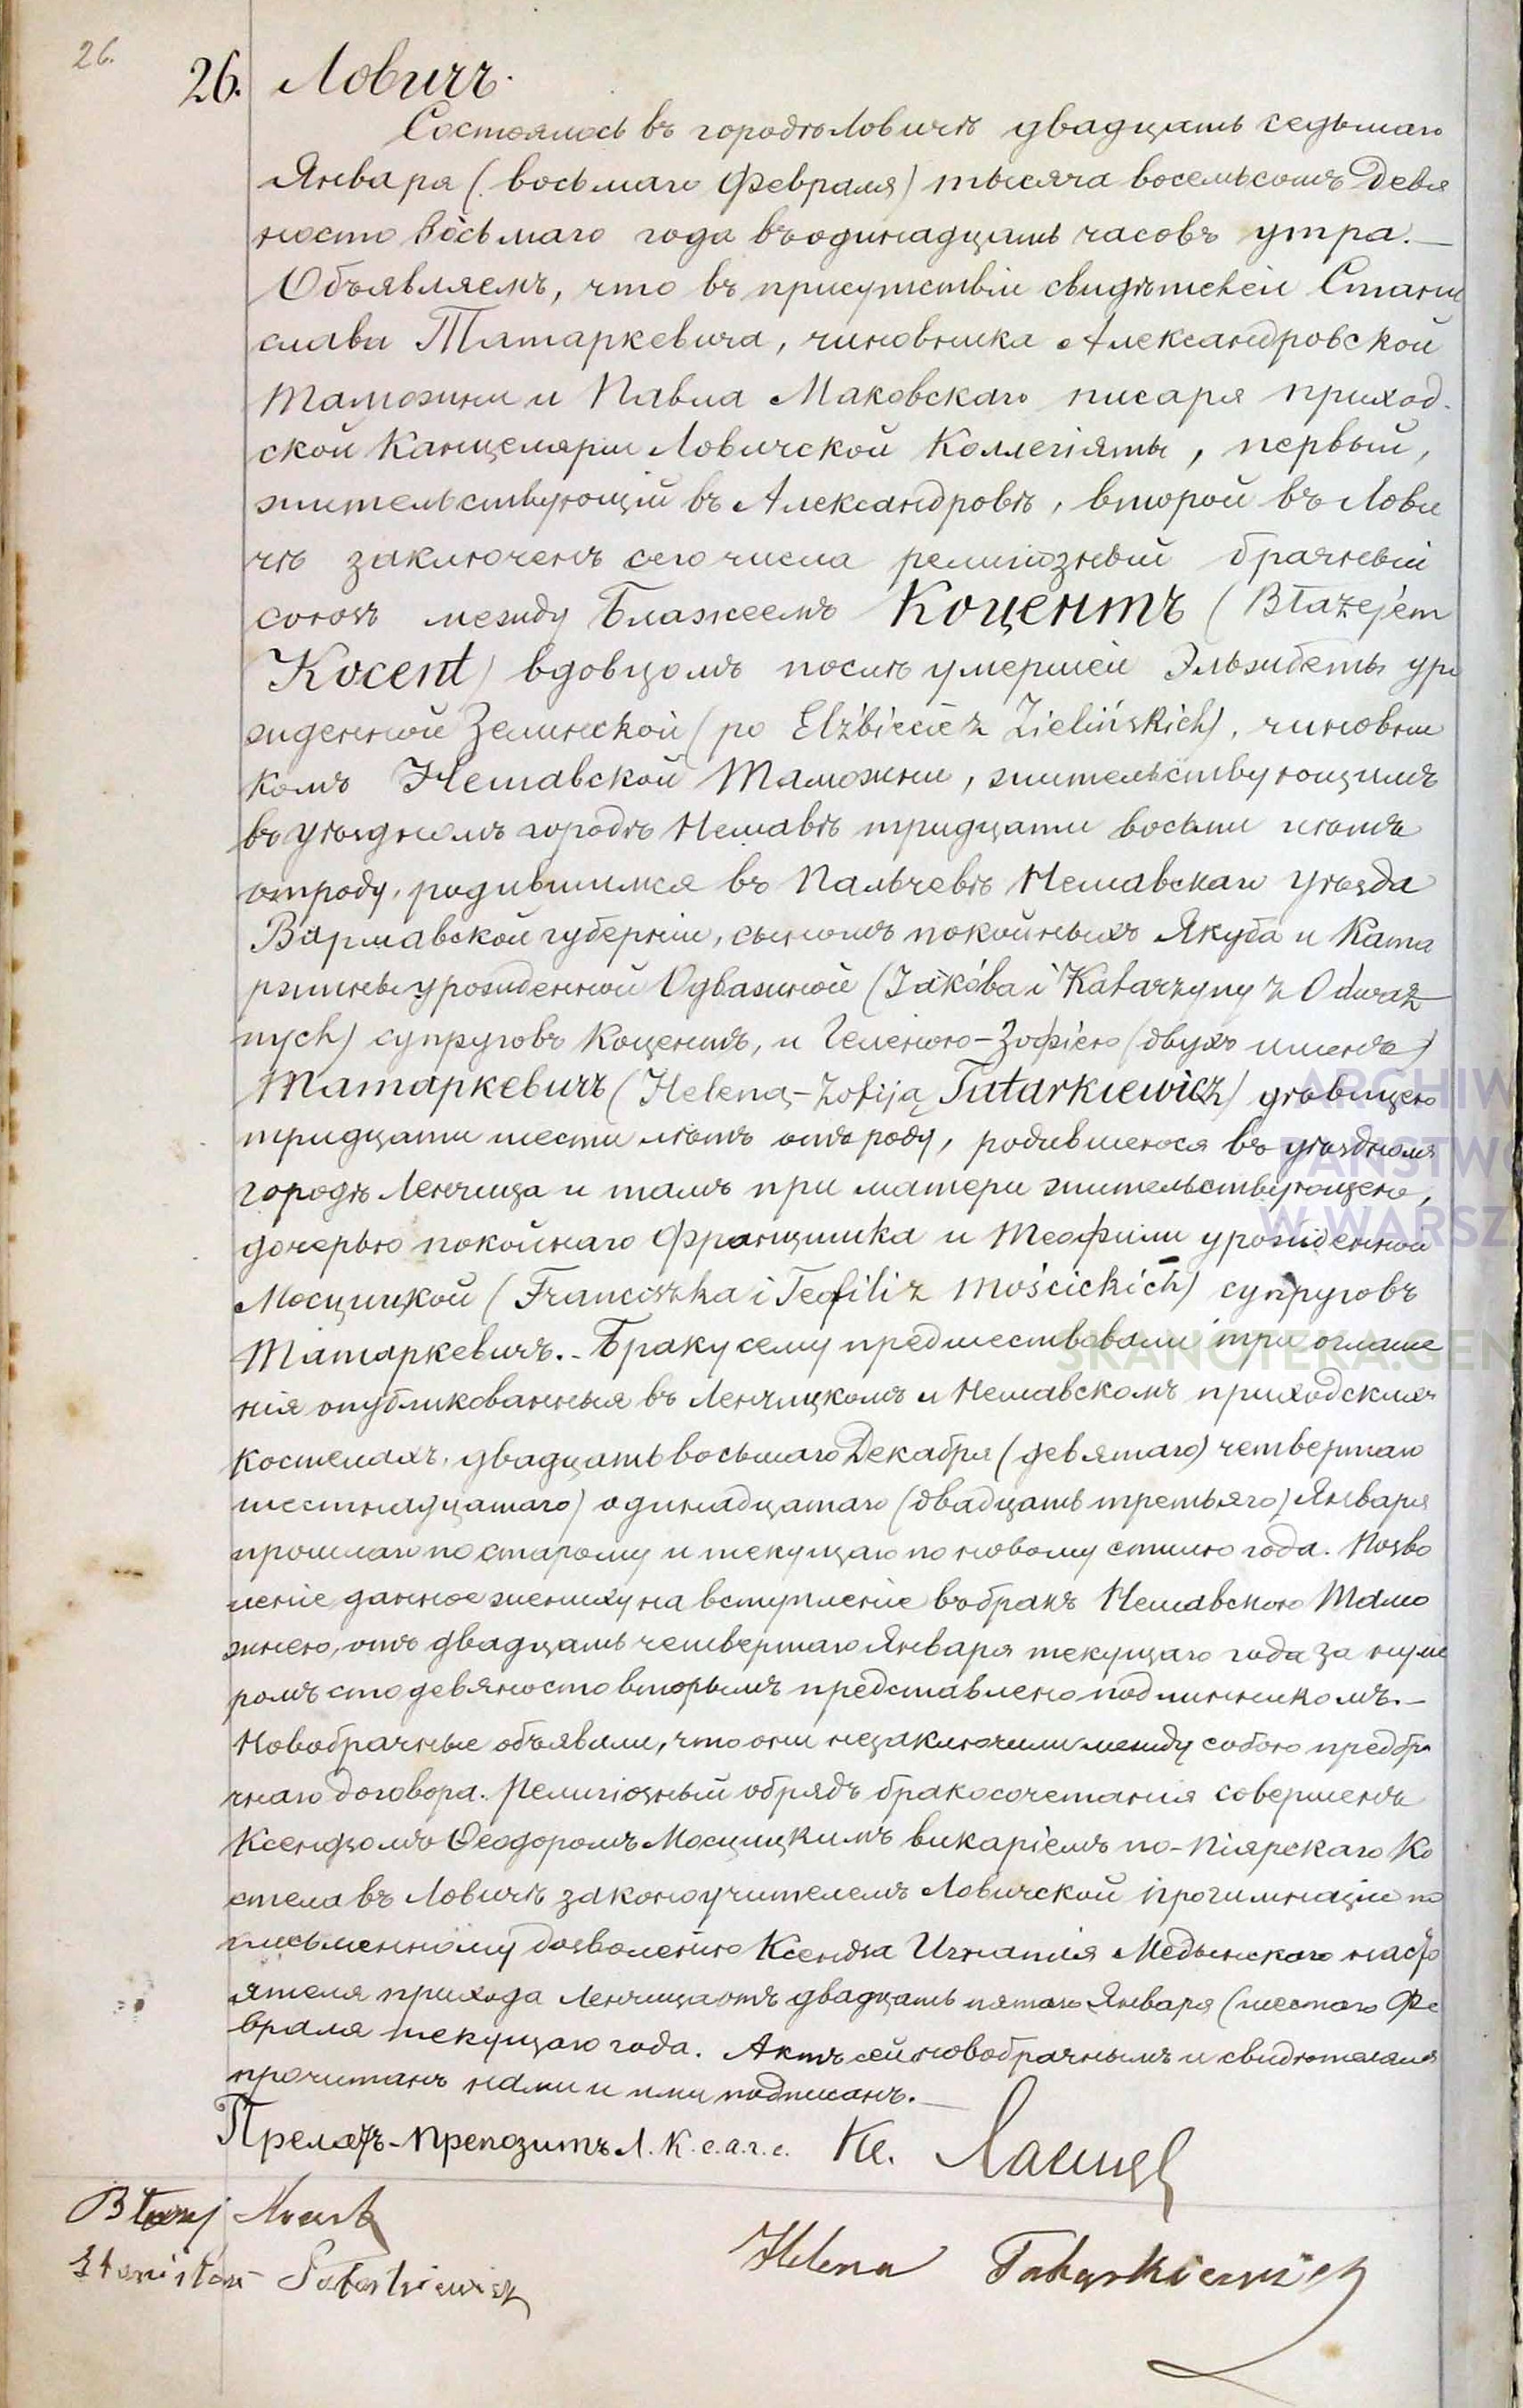 26.
26. Ловичъ.
Состоялось въ городѣ Ловичѣ двадцать седьмаго
Января (восьмаго Февраля) тысяча восемьсотъ девя
носто восьмаго года въ одинадцать часовъ утра.—
Объявляемъ, что въ присутствіи свидѣтелей Стани
слава Татаркевича, чиновника Александровской
Таможни и Павла Маковскаго писаря приход-
ской Канцеляріи Ловичской Коллегіяты, первый,
жительствующій въ Александровѣ, второй въ Лови
чѣ заключенъ сего числа религіозный брачный
союзъ между Блажеемъ Коцентъ (Błażejem
Kocent) вдовцомъ послѣ умершей Эльжбеты уро
жденной Зелинской (po Elżbiecie z Zielińskich), чиновни
комъ Нешавской Таможни, жительствующимъ
въ уѣздномъ городѣ Нешавѣ тридцати восьми лѣтъ
отроду, родившимся въ Пальчевѣ Нешавскаго Уѣзда
Варшавской губерніи, сыномъ покойныхъ Якуба и Ката
ржины урожденной Одважной (Jakóba i Katarzyny z Odważ
nych) супруговъ Коцентъ, и Геленою-Зофіею (двухъ именъ)
Татаркевичъ (Heleną-Zofiją Tatarkiewicz) дѣвицею
тридцати шести лѣтъ отъ роду, родившеюся въ уѣздномъ
городѣ Ленчица и тамъ при матери жительствующею,
дочерью покойнаго Францишка и Теофили урожденной
Мосцицкой (Franciszka i Teofili z Mościckich) супруговъ
Татаркевичъ.- Браку сему предшествовали три оглаше
нія опубликованныя въ Ленчицкомъ и Нешавскомъ приходскихъ
костелахъ, двадцать восьмаго Декабря (девятаго) четвертаго
шестнадцатаго) одинадцатаго (двадцать третьяго) Января
прошлаго по старому и текущаго по новому стилю года. Позво
леніе данное жениху на вступленіе въ бракъ Нешавскою Тамо
жнею, отъ двадцать четвертаго Января текущаго года за нуме
ромъ сто девяносто вторымъ представлено подлинникомъ.—
Новобрачные объявили, что они незаключили между собою предбра
чнаго договора. Религіозный обрядъ бракосочетанія совершенъ
Ксендзомъ Ѳеодоромъ Мосцицкимъ викаріемъ по-Піярскаго Ко
стела въ Ловичѣ законоучителемъ Ловичской прогимназіи по
письменному дозволенію Ксендза Игнатія Медынскаго насто
ятеля прихода Ленчица отъ двадцать пятаго Января (шестаго Фе
враля текущаго года. Актъ сей новобрачнымъ и свидѣтелямъ
прочитанъ нами и ими подписанъ.—
Прелатъ-Препозитъ Л. К. с.а.г.с. Кс.
Błażej Kocent
Helena Tatarkiewicz
Stanisław Tatarkiewicz
ARCHIW
PAŃSTWO
W WARSZ
SKANOTEKA.GEN